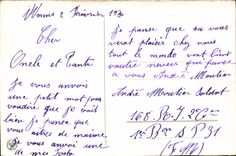 Worms 2 Février 193
Cher
Oncle et Tante
Je vous envois
une petit mot pour
vous dire que je vait
bien je panse que
vous aitres de maime
je vous envoi une
de mes
je panse que sa vous
verat plaisir chez nous
tout le monde vat bien
vautre neveu qui panse
a vous André Moutier
André Moutier Soldat
168 R. I. 2 Cie
1e B S P 31